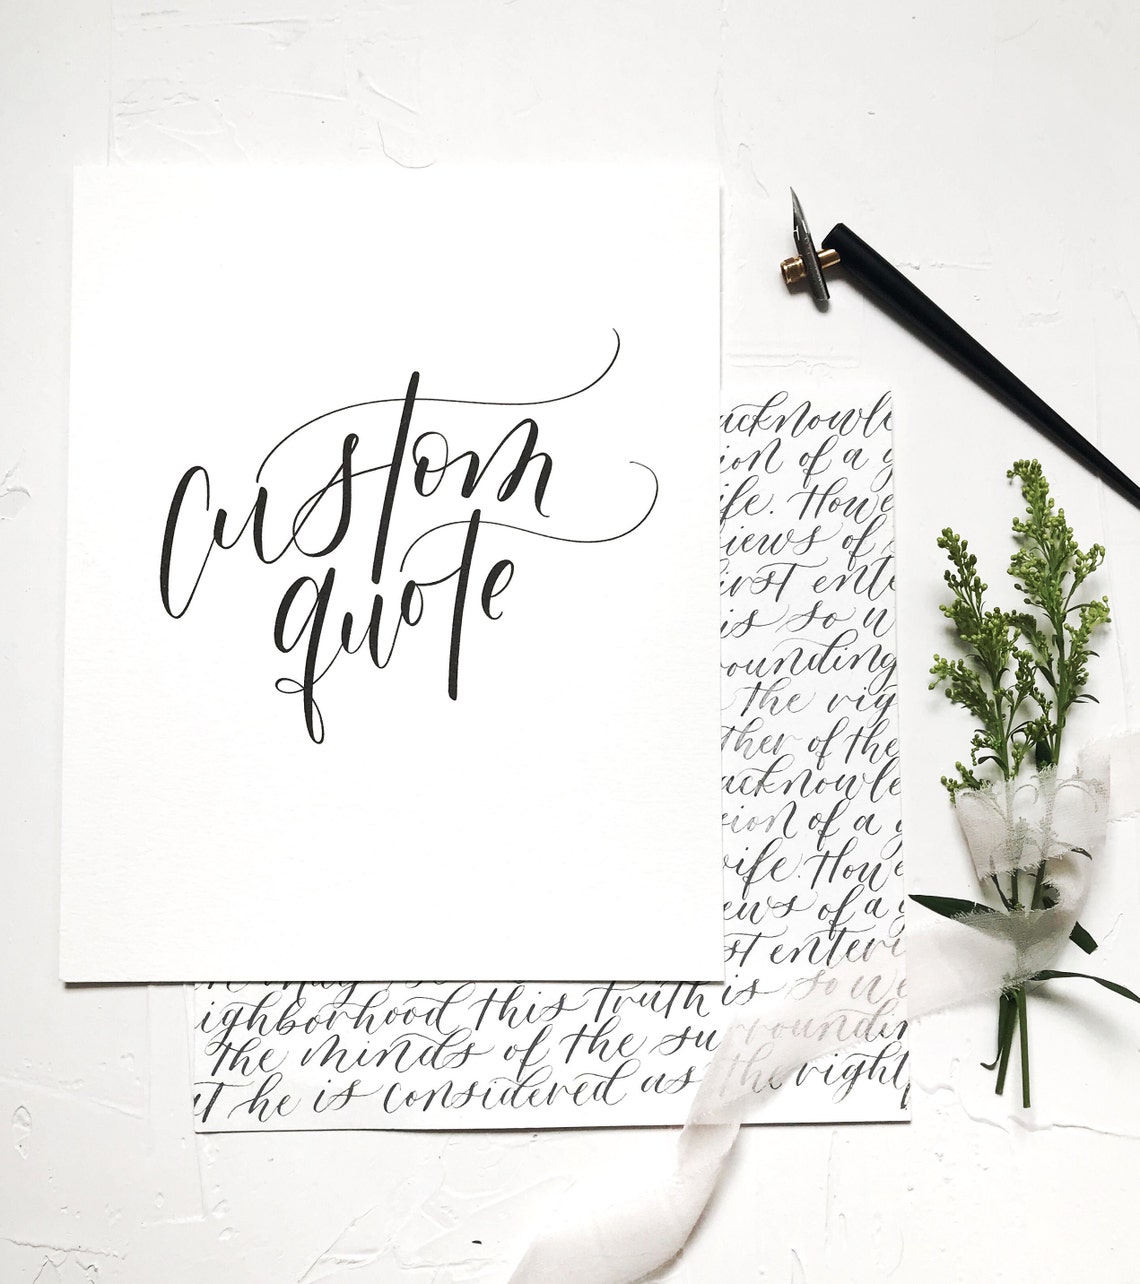 custom
quote
acknowle
ion of a g
ife. Howe
iews of
irst ente
is so w
rounding
the rig
ther of the
acknowle
sion of a g
wife. Howe
ews of a g
st enteri
may
ighborhood this truth is so we
the minds of the surroundin
t he is considered as the right